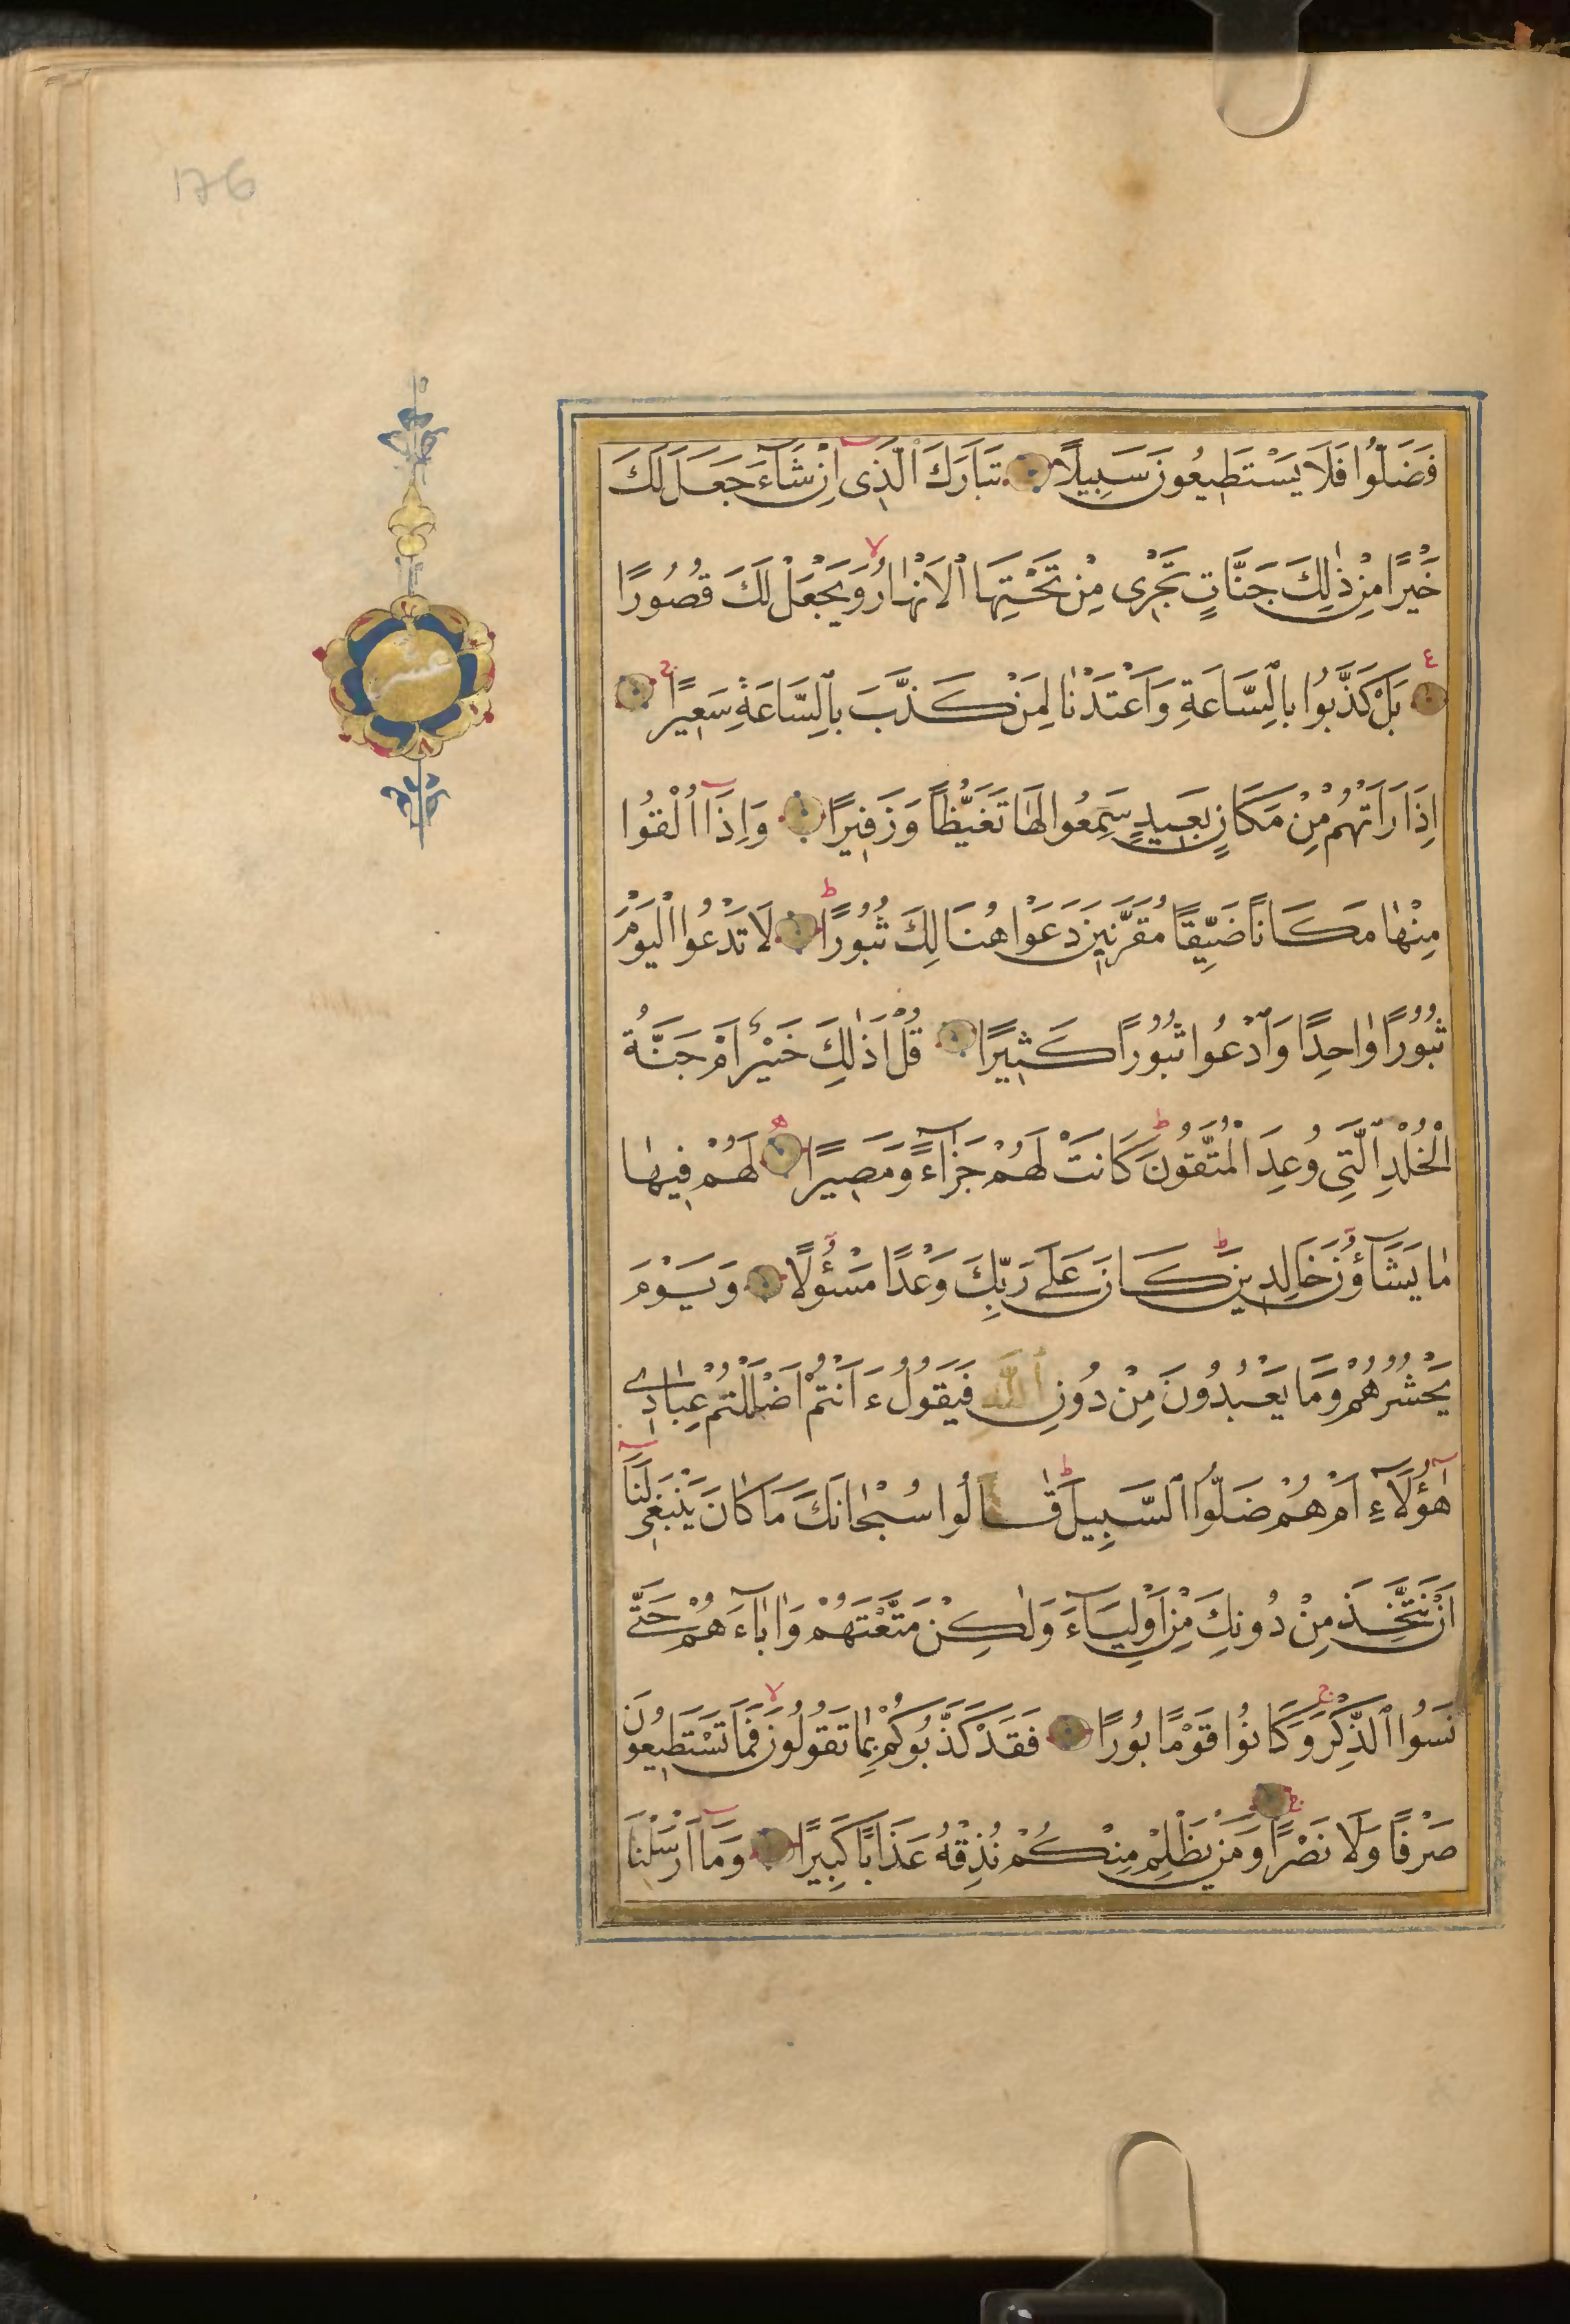 176
فَضَلُّوا فَلَا يَسْتَطِيعُونَ سَبِيلًا تَبَارَكَ ٱلَّذِى اِنْ شَآءَ جَعَلَ لَكَ
خَيْرًا مِنْ ذٰلِكَ جَنَّاتٍ تَجْرِى مِنْ تَحْتِهَا ٱلْاَنْهَارُ وَيَجْعَلْ لَكَ قُصُورًا
بَلْ كَذَّبُوا بِالسَّاعَةِ وَاَعْتَدْنَا لِمَنْ كَذَّبَ بِالسَّاعَةِ سَعِيرًا
اِذَا رَاَتْهُمْ مِنْ مَكَانٍ بَعِيدٍ سَمِعُوا لَهَا تَغَيُّظًا وَزَفِيرًا وَاِذَآ اُلْقُوا
مِنْهَا مَكَانًا ضَيِّقًا مُقَرَّنِينَ دَعَوْا هُنَالِكَ ثُبُورًا لَا تَدْعُوا الْيَوْمَ
ثُبُورًا وَاحِدًا وَٱدْعُوا ثُبُورًا كَثِيرًا قُلْ اَذٰلِكَ خَيْرٌ اَمْ جَنَّةُ
الْخُلْدِ ٱلَّتِى وُعِدَ الْمُتَّقُونَ كَانَتْ لَهُمْ جَزَآءً وَمَصِيرًا لَهُمْ فِيهَا
مَا يَشَآؤُنَ خَالِدِينَ كَانَ عَلٰى رَبِّكَ وَعْدًا مَسْؤُلًا وَيَوْمَ
يَحْشُرُهُمْ وَمَا يَعْبُدُونَ مِنْ دُونِ ٱللّٰهِ فَيَقُولُ ءَاَنْتُمْ اَضْلَلْتُمْ عِبَادِى
هٰٓؤُلَآءِ اَمْ هُمْ ضَلُّوا ٱلسَّبِيلَ قَالُوا سُبْحَانَكَ مَا كَانَ يَنْبَغِى لَنَآ
اَنْ نَتَّخِذَ مِنْ دُونِكَ مِنْ اَوْلِيَآءَ وَلٰكِنْ مَتَّعْتَهُمْ وَاٰبَآءَهُمْ حَتّٰى
نَسُوا ٱلذِّكْرَ وَكَانُوا قَوْمًا بُورًا فَقَدْ كَذَّبُوكُمْ بِمَا تَقُولُونَ فَمَا تَسْتَطِيعُونَ
صَرْفًا وَلَا نَصْرًا وَمَنْ يَظْلِمْ مِنْكُمْ نُذِقْهُ عَذَابًا كَبِيرًا وَمَآ اَرْسَلْنَا